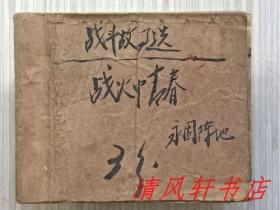 战斗故事选
战火中青春
永固阵地
清风轩书店